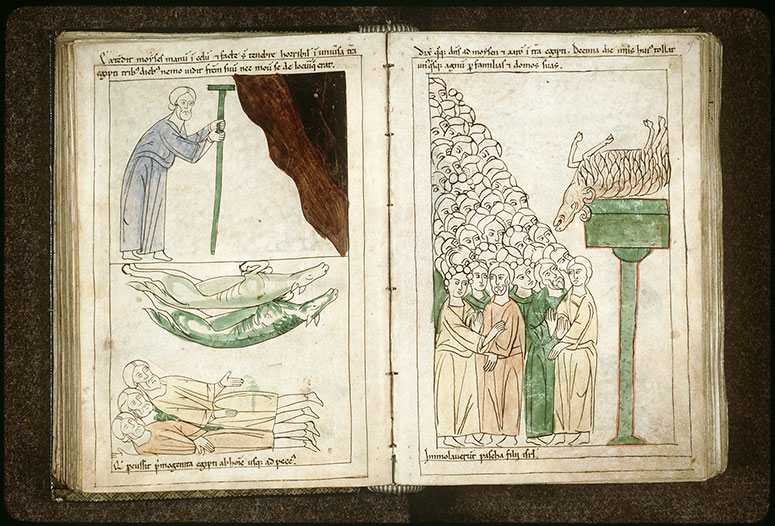 Extendit moyses manū ī celū ⁊ facte sᵗ tenebre horribil' ī uniūsa t̄ra
egipti tribꝰ diebꝰ nemo uidit frēm suū nec mou' se de loco ubi erat.
Qi pcussit pmogenita egipti ab hoīe usq; ad pecꝰ.
Dix̄ q̄q; dn̄s ad moysen ⁊ aarō ī t̄ra egipti. Decima die m̄sis huiꝰ tollat
unꝰq̄sq; agnū p familias ⁊ domos suas.
Immolauerūt pascha filii isrl̄.